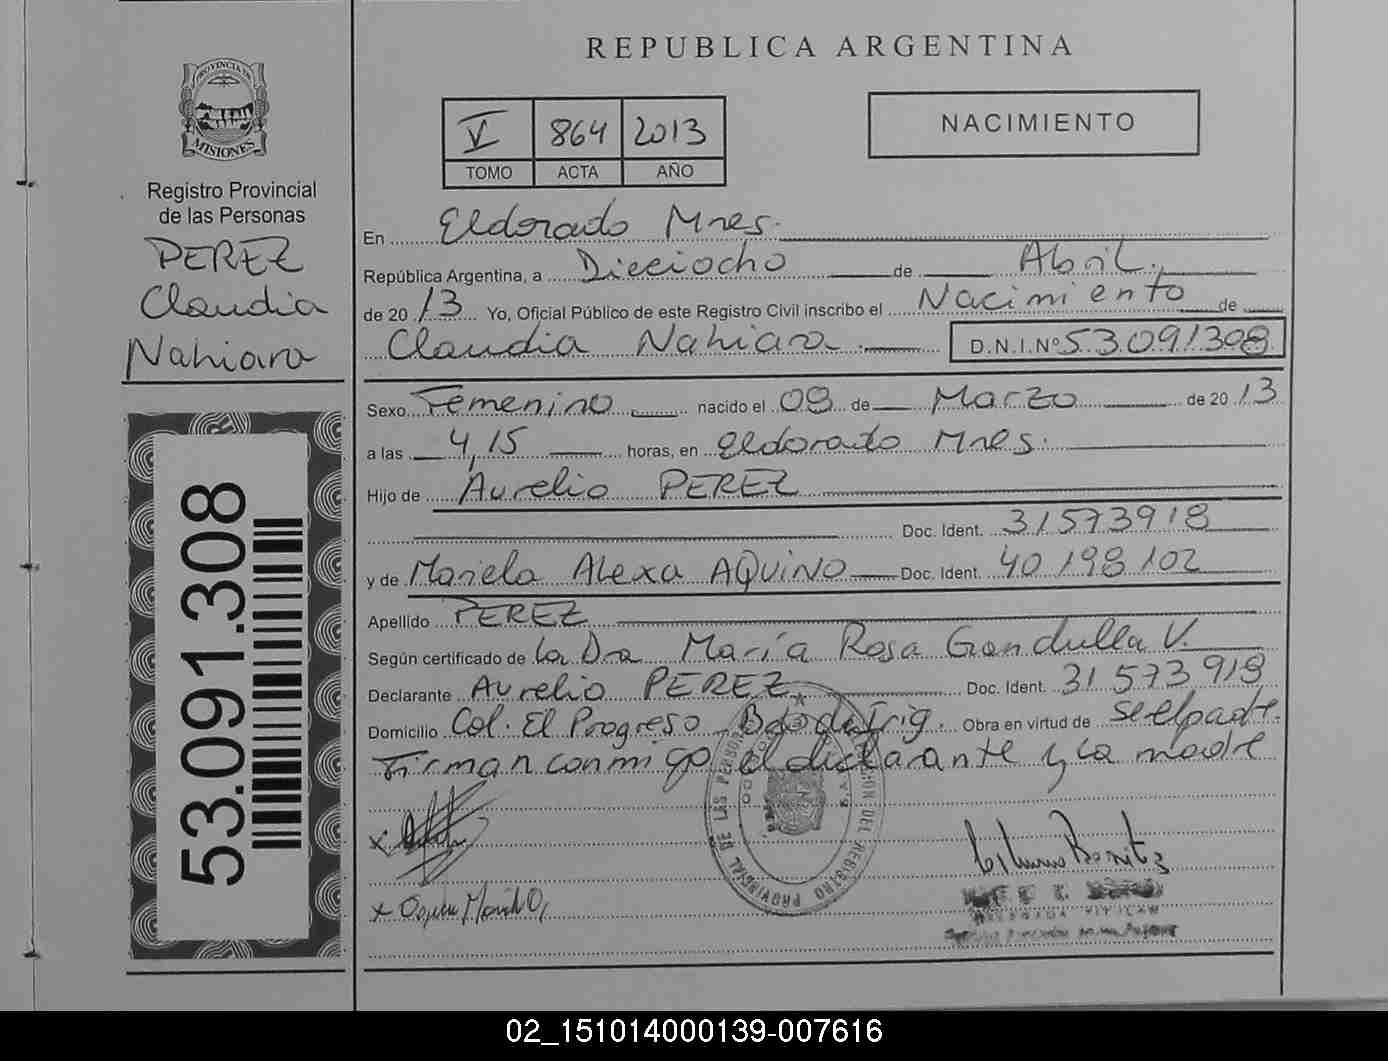 REPUBLICA ARGENTINA
PROVINCIA DE
MISIONES
Registro Provincial
de las Personas
PEREZ
Claudia
Nahiara
53.091.308
V 864 2013
TOMO ACTA AÑO
NACIMIENTO
En Eldorado Mnes.
República Argentina, a Dieciocho de Abril.
de 2013 Yo, Oficial Público de este Registro Civil inscribo el Nacimiento de
Claudia Nahiara. D.N.I.Nº 53.091308
Sexo Femenino nacido el 09 de Marzo de 2013
a las 4,15 horas, en Eldorado Mnes.
Hijo de Aurelio PEREZ
Doc. Ident. 31573918
y de Mariela Alexa AQUINO Doc. Ident. 40 198 102
Apellido PEREZ
Según certificado de la Dra María Rosa Gandulla V.
Declarante Aurelio PEREZ Doc. Ident. 31 573 918
Domicilio Col. El Progreso Bdo de Irig. Obra en virtud de ser el padre.
Firman conmigo el declarante y la madre
REGISTRO PROVINCIAL DE LAS PERSONAS
02_151014000139-007616